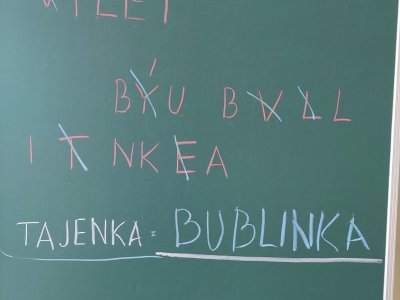 BÝU BVLL
I T NKEA
TAJENKA: BUBLINKA